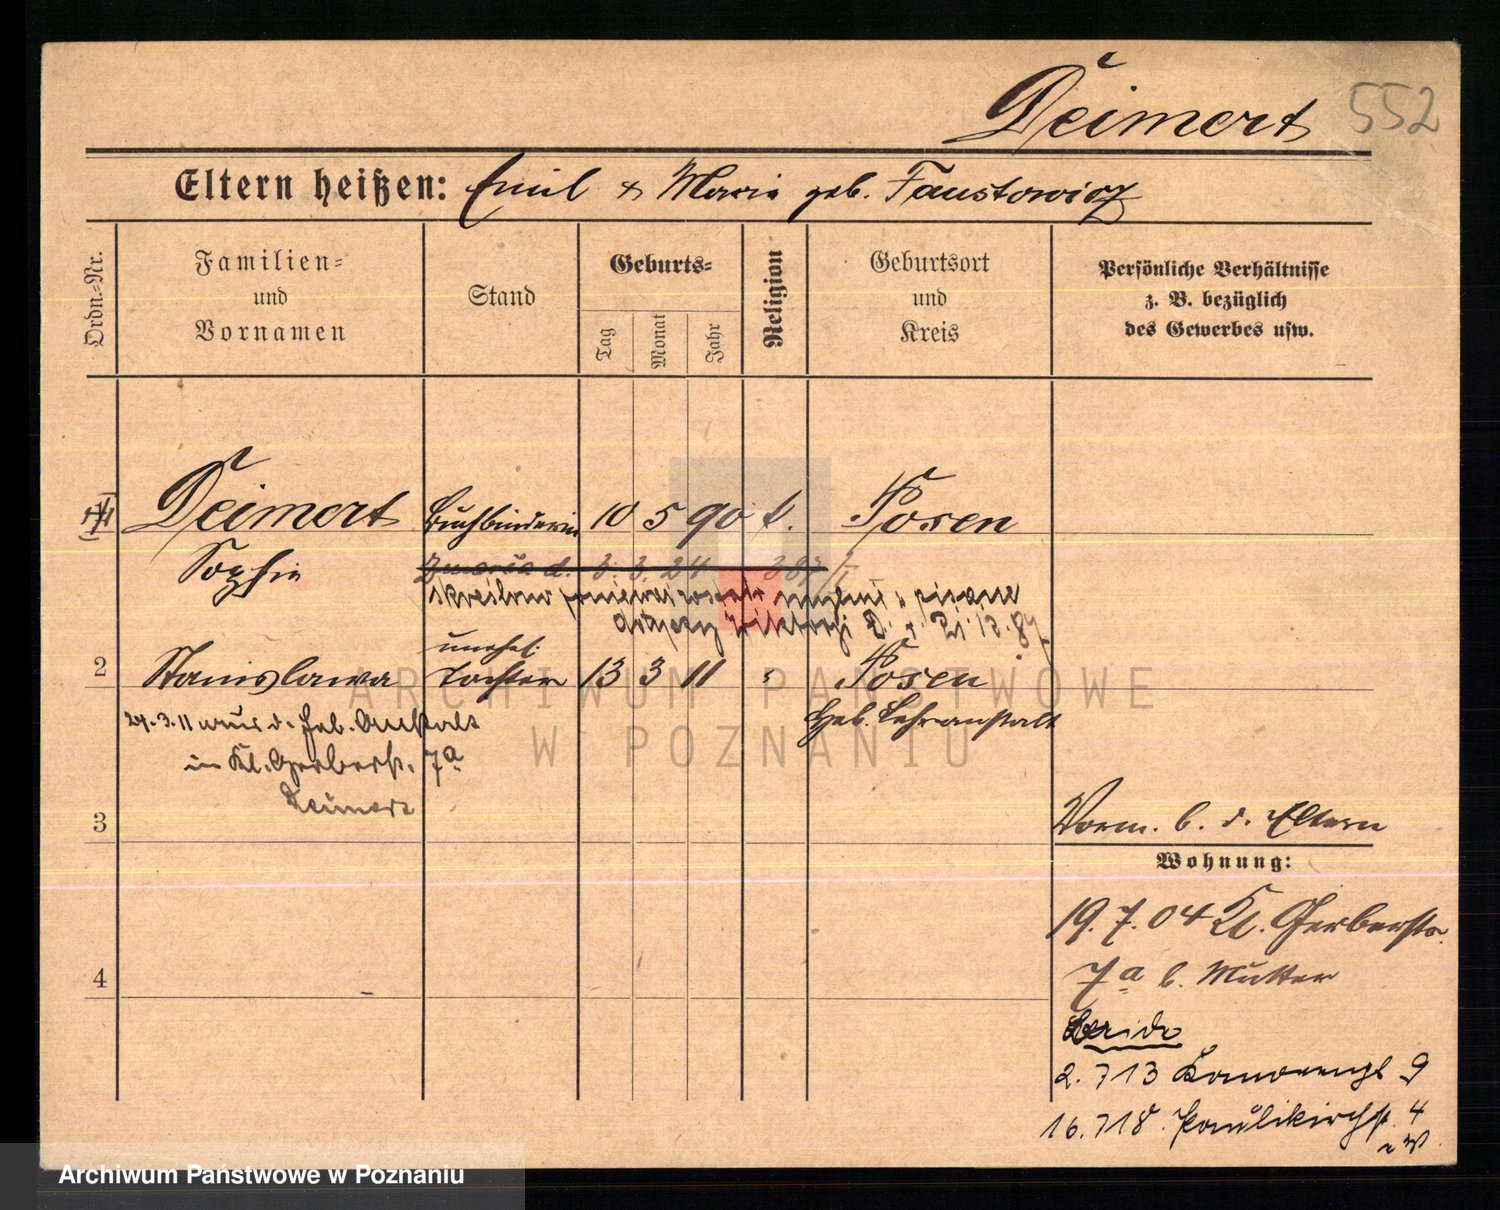 Deimert 552
Eltern heißen: Emil & Marie geb. Faustowicz
Ordn.-Nr.
Familien-
und
Vornamen
Stand
Geburts-
Tag
Monat
Jahr
Religion
Geburtsort
und
Kreis
Persönliche Verhältnisse
z. B. bezüglich
des Gewerbes usw.
Deimert Buchbinderin 10 5 90 k. Posen
Sophie
Zmarła d. 3. 3. 24
unehel.
2 Stanislawa Tochter 13 3 11 " Posen
24.3.11 aus d. Heb. Anstalt Heb. Lehranstalt
in Kl. Gerberstr. 7a
Deimert
3
Vorm. b. d. Eltern
Wohnung:
19.7.04 Kl. Gerberstr.
7a b. Mutter
4
Beide
2.7 13 9
16.7 18. Paulikirchstr. 4
ARCHIWUM PAŃSTWOWE
W POZNANIU
Archiwum Państwowe w Poznaniu